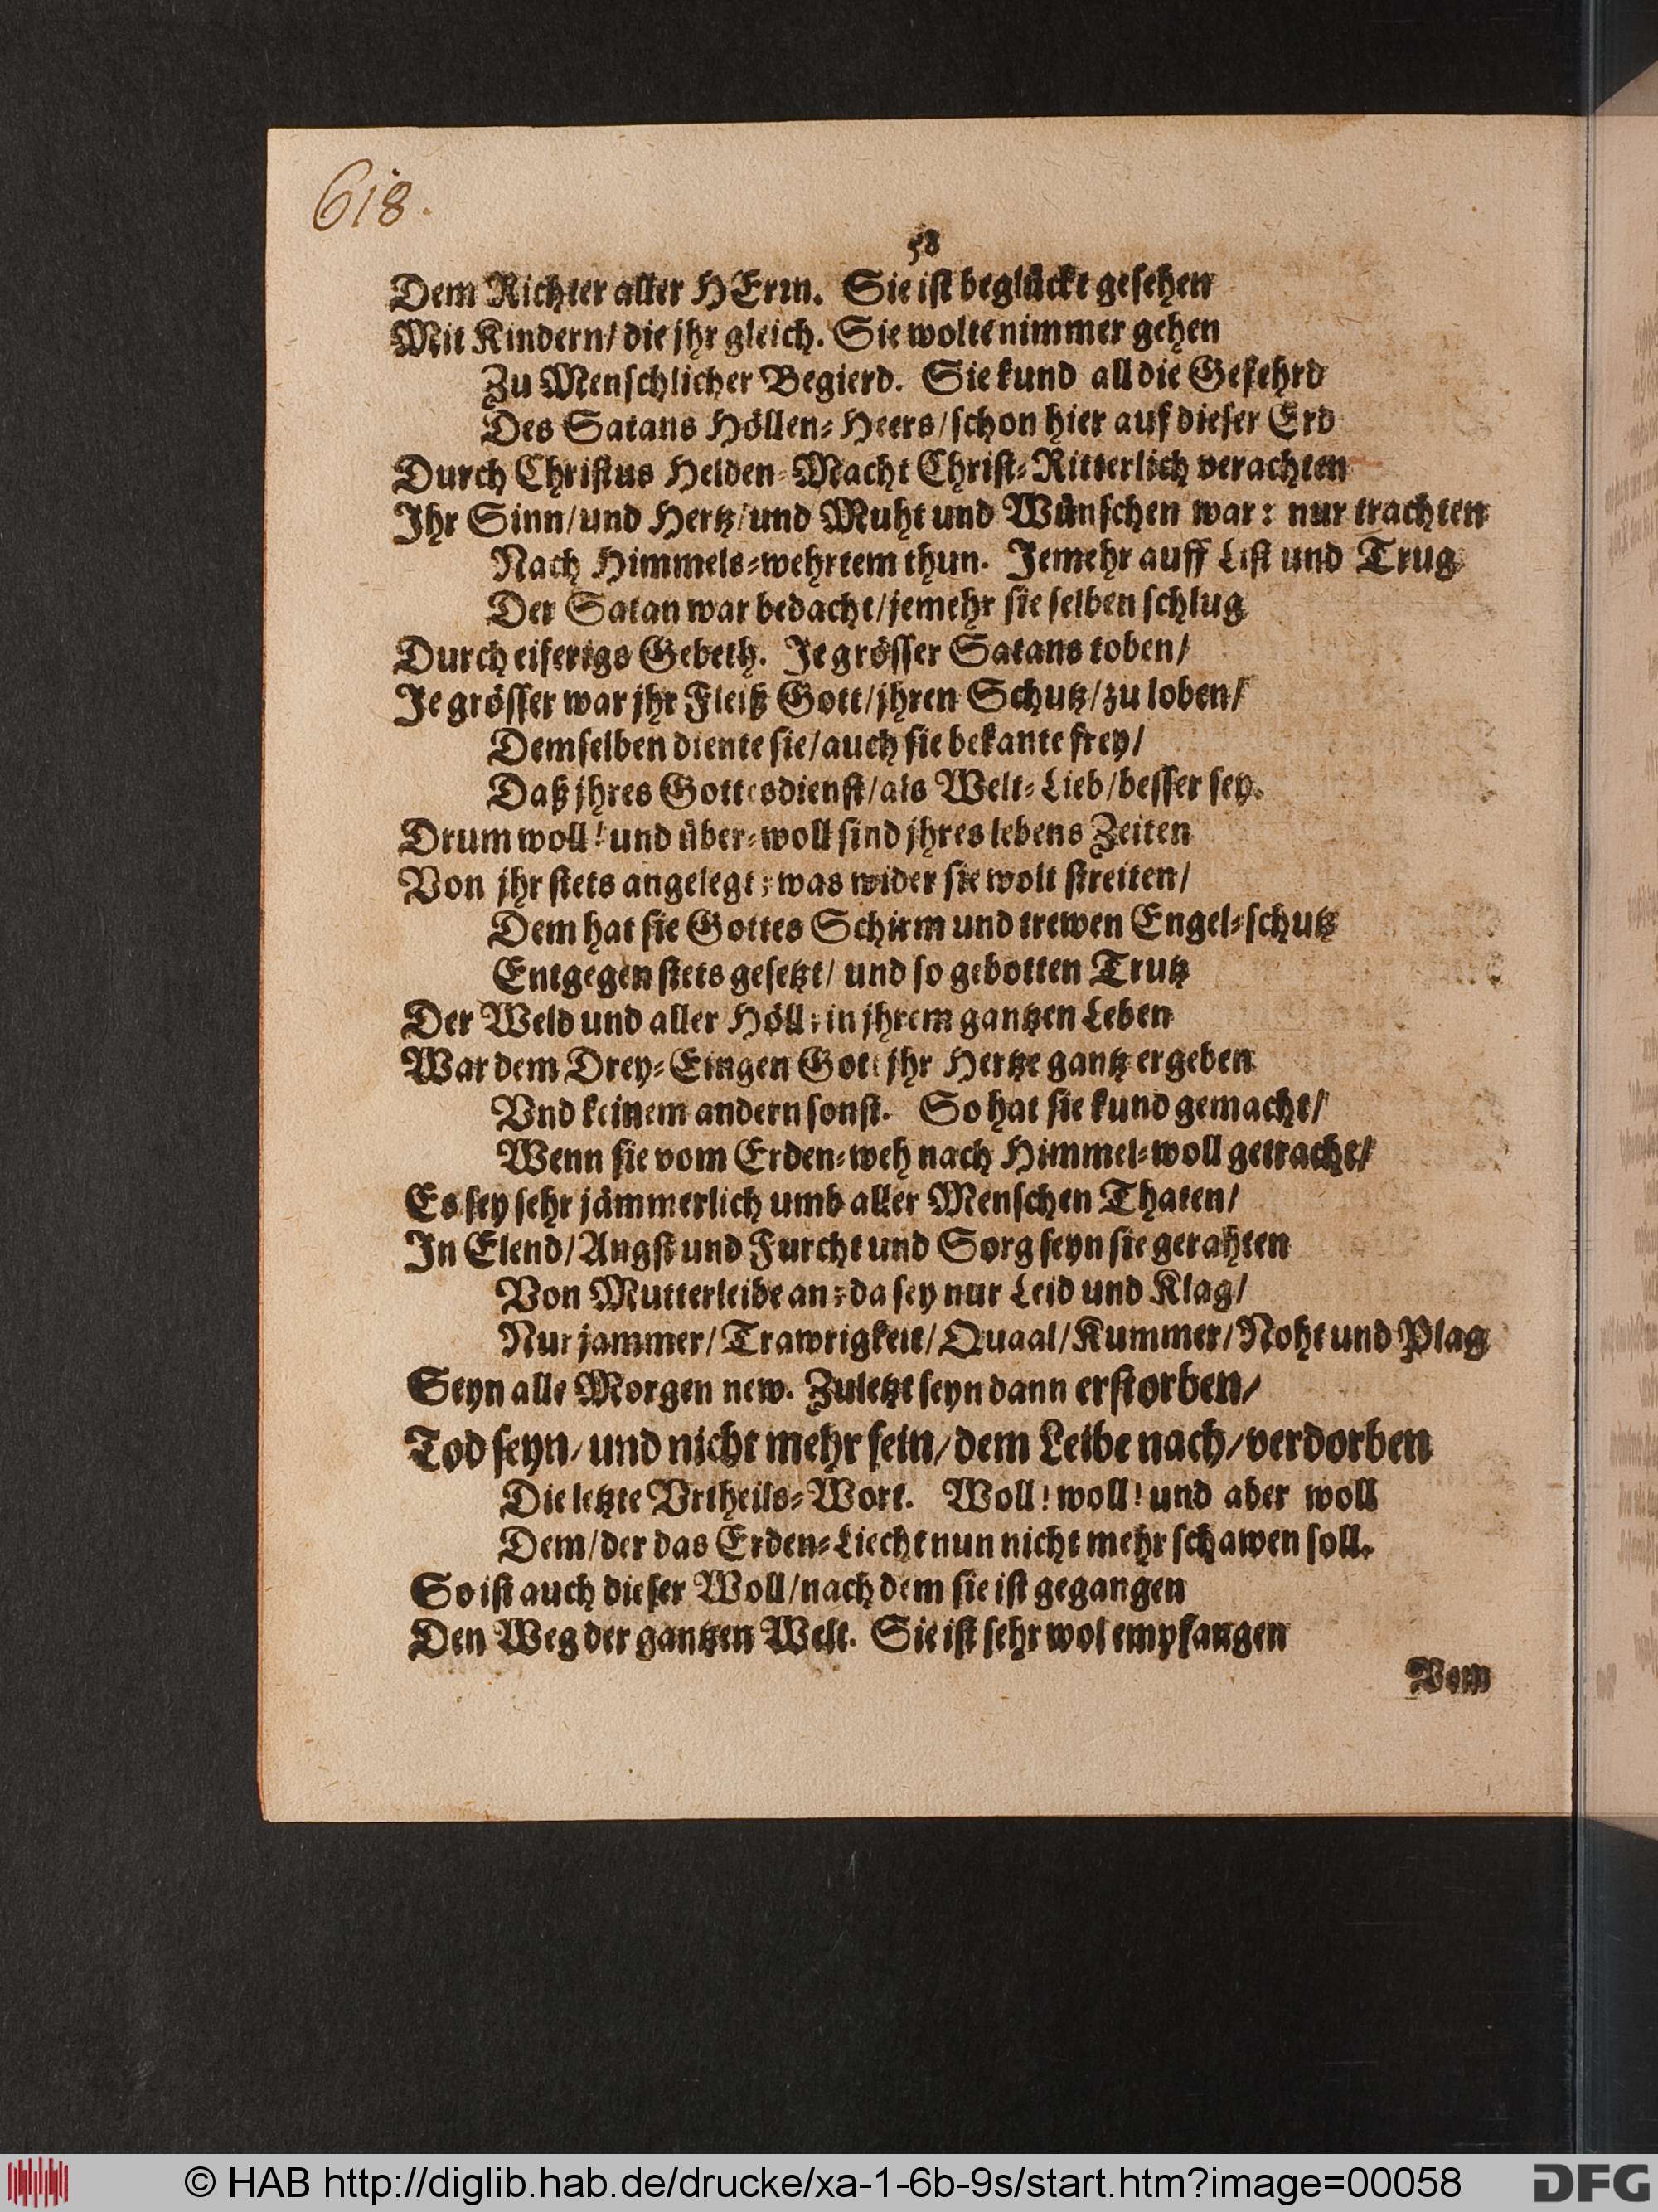 618.
58
Dem Richter aller HErꝛn. Sie ist beglückt gesehen
Mit Kindern/ die jhr gleich. Sie wolte nimmer gehen
Zu Menschlicher Begierd. Sie kund all die Gefehrd
Des Satans Höllen-Heers/ schon hier auf dieser Erd
Durch Christus Helden-Macht Christ-Ritterlich verachten
Ihr Sinn/ und Hertz/ und Muht und Wünschen war: nur trachten
Nach Himmels-wehrtem thun. Jemehr auff List und Trug
Der Satan war bedacht/ jemehr sie selben schlug
Durch eiferigs Gebeth. Je grösser Satans toben/
Je grösser war jhr Fleiß Gott/ jhren Schutz/ zu loben/
Demselben diente sie/ auch sie bekante frey/
Daß jhres Gottesdienst/ als Welt-Lieb/ besser sey.
Drum woll! und über-woll sind jhres lebens Zeiten
Von jhr stets angelegt; was wider sie wolt streiten/
Dem hat sie Gottes Schirm und trewen Engel-schutz
Entgegen stets gesetzt/ und so gebotten Trutz
Der Weld und aller Höll; in jhrem gantzen Leben
War dem Drey-Eingen Gott jhr Hertze gantz ergeben
Vnd keinem andern sonst. So hat sie kund gemacht/
Wenn sie vom Erden-weh nach Himmel-woll getracht/
Es sey sehr jämmerlich umb aller Menschen Thaten/
In Elend/ Angst und Furcht und Sorg seyn sie gerahten
Von Mutterleibe an; da sey nur Leid und Klag/
Nur jammer/ Trawrigkeit/ Quaal/ Kummer/ Noht und Plag
Seyn alle Morgen new. Zuletzt seyn dann erstorben/
Tod seyn/ und nicht mehr sein/ dem Leibe nach/ verdorben
Die letzte Vrtheils-Wort. Woll! woll! und aber woll
Dem/ der das Erden-Liecht nun nicht mehr schawen soll.
So ist auch dieser Woll/ nach dem sie ist gegangen
Den Weg der gantzen Welt. Sie ist sehr wol empfangen
Vom
© HAB http://diglib.hab.de/drucke/xa-1-6b-9s/start.htm?image=00058
DFG